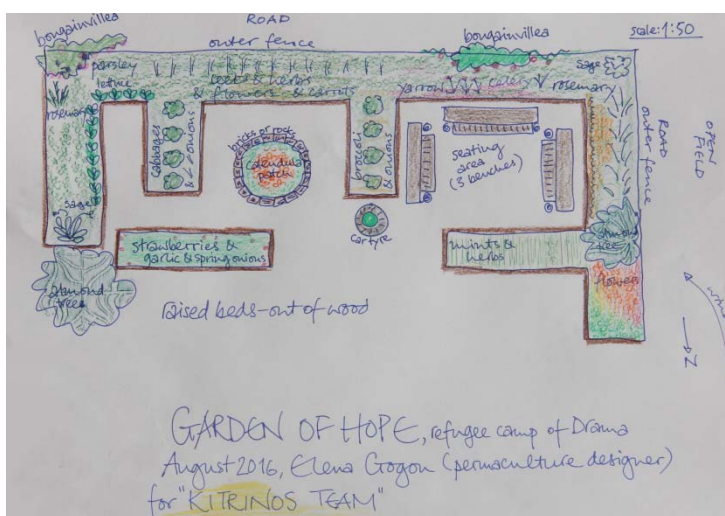 ROAD
bougainvillea
outer fence
bougainvillea
scale: 1:50
parsley
lettuce
beets & herbs
& flowers & carrots
yarrow
celery
rosemary
sage
rosemary
cabbages
& onions
bricks or rocks
calendula
patch
broccoli
& onions
seating
area
(3 benches)
ROAD
outer fence
OPEN
FIELD
sage
car tyre
strawberries &
garlic & spring onions
mints &
herbs
almond
tree
almond
tree
flowers
raised beds-out of wood
N
GARDEN OF HOPE, refugee camp of Drama
August 2016, Elena Gogou (permaculture designer)
for "KITRINOS TEAM"